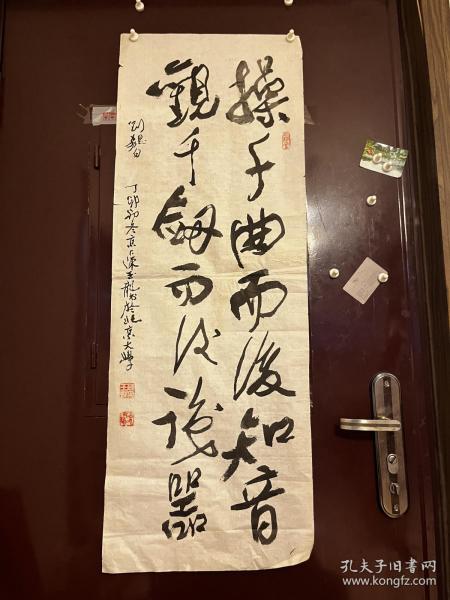 操千曲而後知音
觀千劍而後識器
劉勰句
丁卯初冬京口陳玉龍書於北京大學
孔夫子旧书网
www.kongfz.com